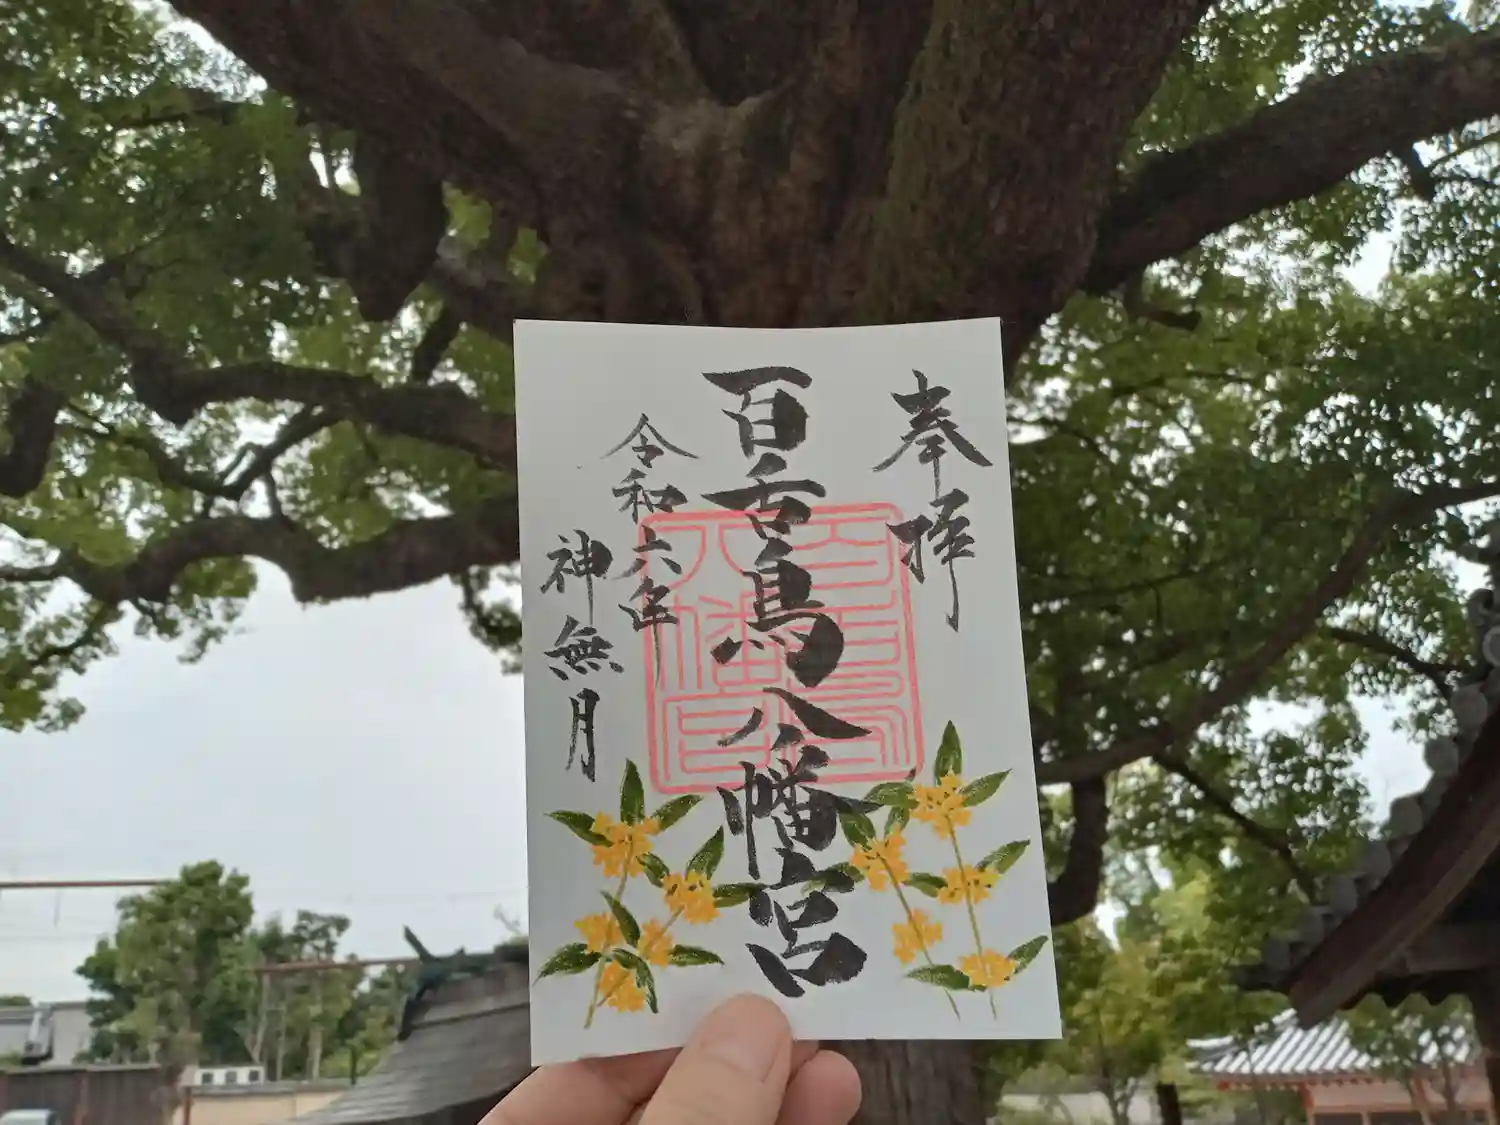 奉拝
百舌鳥八幡宮
令和六年
神無月
百舌鳥
八幡宮